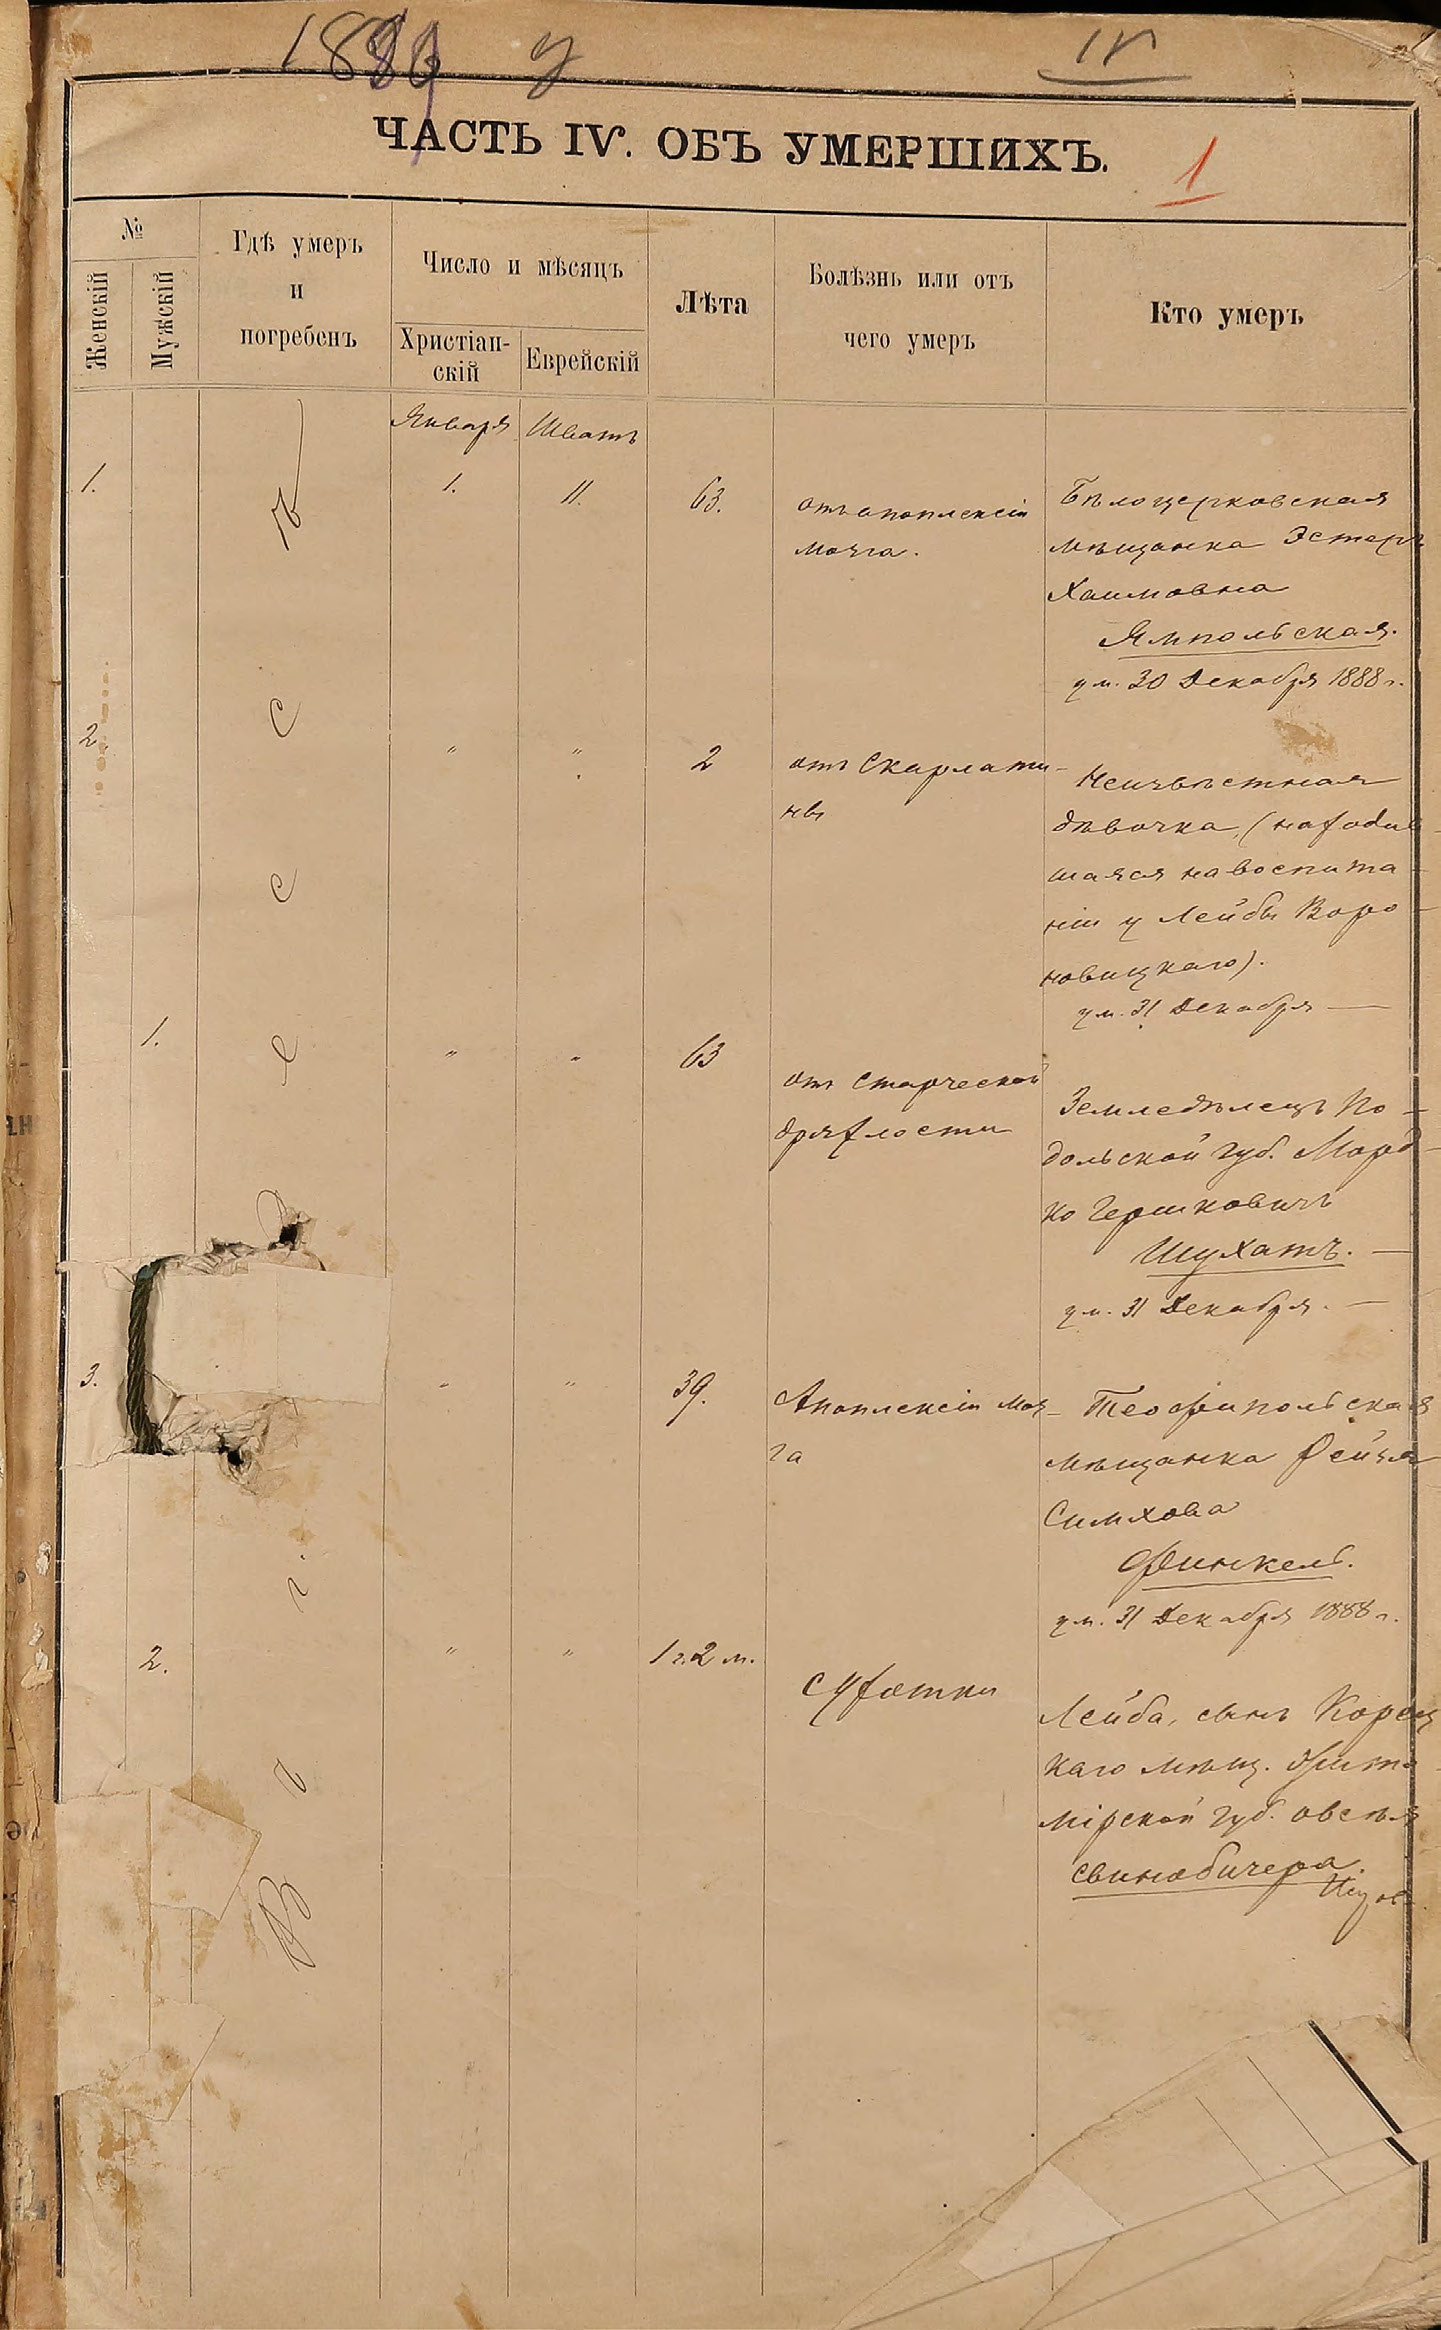 1889 г
IV
ЧАСТЬ IV. ОБЪ УМЕРШИХЪ.
1
№
Женскій
Мужскій
Гдѣ умеръ
и
погребенъ
Число и мѣсяцъ
Христіан-
скій
Еврейскій
Лѣта
Болѣзнь или отъ
чего умеръ
Кто умеръ
Января
Шватъ
1.
1.
11.
63.
отъ апоплексіи
мозга.
Бѣлоцерковская
мѣщанка Эстеръ
Хаимовна
Ямпольская.
ум. 30 Декабря 1888 г.
2.
"
"
2
отъ Скарлати-
ны
Неизвѣстная
дѣвочка, (находив-
шаяся на воспита-
ніи у Лейбы Воро-
новицкаго).
ум. 31 Декабря —
1.
"
"
63
отъ старческой
дряхлости
Земледѣлецъ По-
дольской губ. Морд-
ко Гершковичъ
Шухатъ. —
ум. 31 Декабря. —
3.
"
"
39.
Апоплексіи моз-
га
Теофипольская
мѣщанка Рейзя
Симхова
Финкель.
ум. 31 Декабря 1888 г.
2.
"
"
1 г. 2 м.
сухотки
Лейба, сынъ Корец
каго мѣщ. Жито-
мірской губ. Овсѣя
Свинобичера.
Въ г. Одессѣ